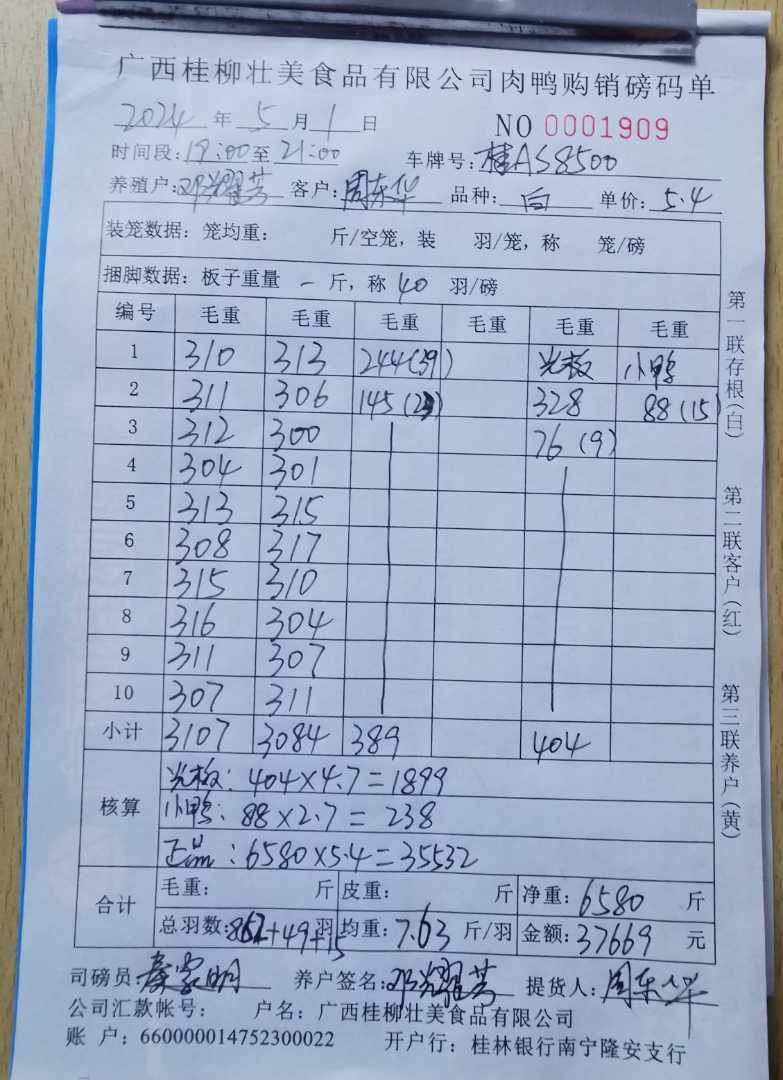 广西桂柳壮美食品有限公司肉鸭购销磅码单
2024年5月1日 NO 0001909
时间段:19:00至21:00 车牌号:桂AS8500
养殖户:邓耀芳 客户:周东华 品种:白 单价:5.4
装笼数据: 笼均重: 斤/空笼,装 羽/笼,称 笼/磅
捆脚数据: 板子重量 - 斤,称 40 羽/磅
编号 毛重 毛重 毛重 毛重 毛重 毛重
1 310 313 244(39) 光板 小鸭
2 311 306 145(23) 328 88(15)
3 312 300 76(9)
4 304 301
5 313 315
6 308 317
7 315 310
8 316 304
9 311 307
10 307 311
小计 3107 3084 389 404
核算 光板:404×4.7=1899
小鸭:88×2.7=238
正品:6580×5.4=35532
合计 毛重: 斤 皮重: 斤 净重:6580 斤
总羽数:862+49+15羽 均重:7.63 斤/羽 金额:37669 元
司磅员:秦家明 养户签名:邓耀芳 提货人:周东华
公司汇款帐号: 户名:广西桂柳壮美食品有限公司
账 户:660000014752300022 开户行:桂林银行南宁隆安支行
第一联存根(白)
第二联客户(红)
第三联养户(黄)